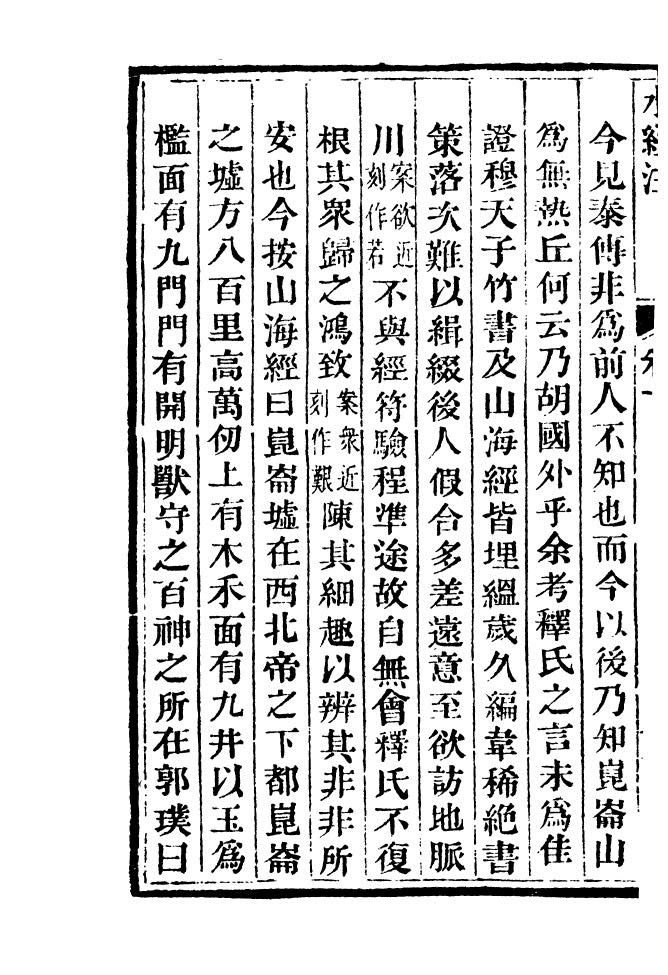 水經注 卷一
今見泰傳非爲前人不知也而今以後乃知崑崙山
爲無熱丘何云乃胡國外乎余考釋氏之言未爲佳
證穆天子竹書及山海經皆埋縕歲久編韋稀絶書
策落次難以緝綴後人假合多差遠意至欲訪地脈
川案欲近刻作若不與經符驗程準途故自無會釋氏不復
根其衆歸之鴻致案衆近刻作艱陳其細趣以辨其非非所
安也今按山海經曰崑崙墟在西北帝之下都崑崙
之墟方八百里高萬仞上有木禾面有九井以玉爲
檻面有九門門有開明獸守之百神之所在郭璞曰